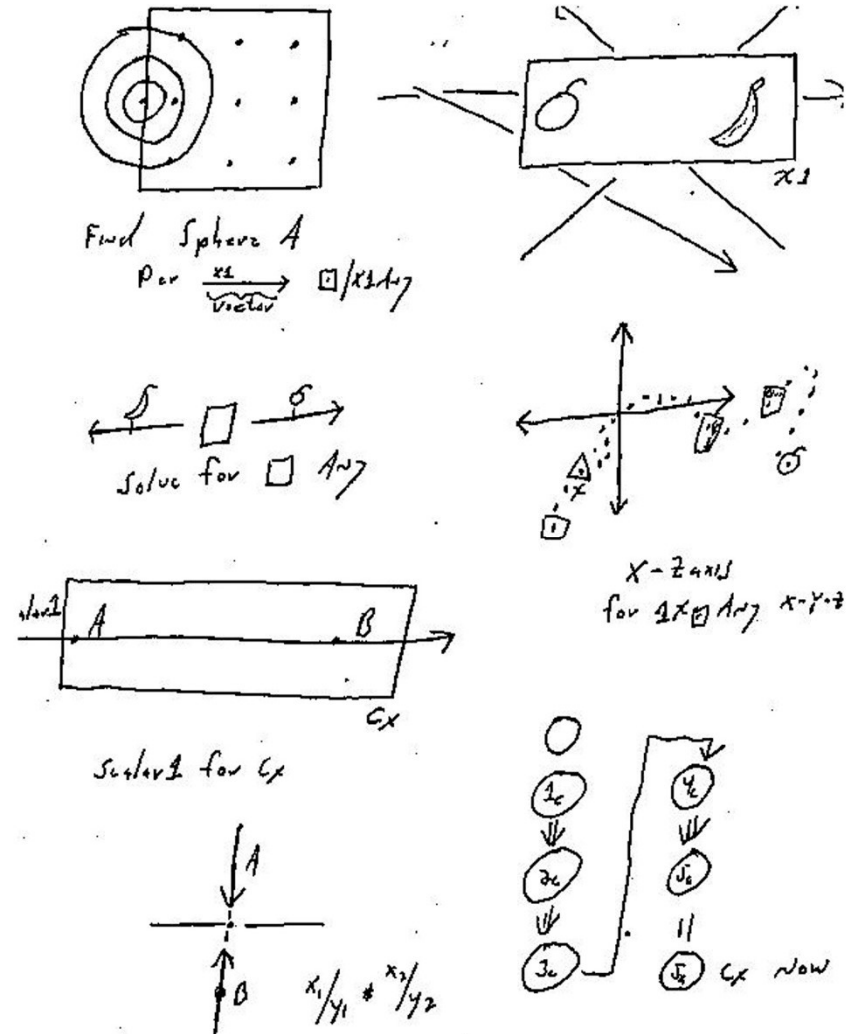 x1
Find Sphere A
Per x1 vector ⊡/x1 Any
Solve for □ Any
X-Z axis
for 1X⊡ Any X-Y-Z
A B
Cx
Scalar1 for Cx
A
B
x1/y1 * x2/y2
1c
2c
3c
4c
5c
Cx Now